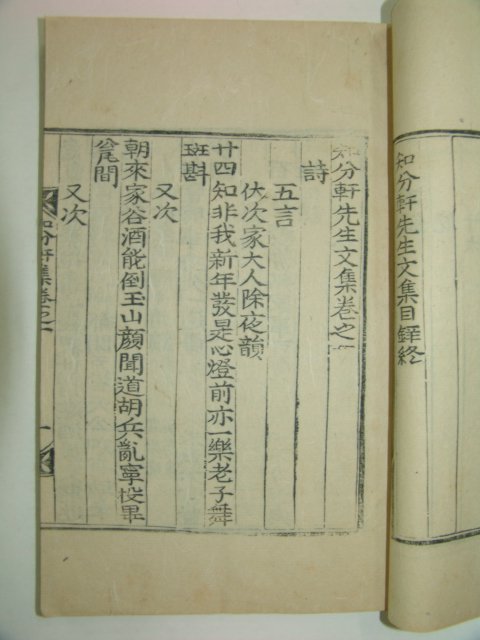 知分軒先生文集目錄終
知分軒先生文集卷之一
詩
五言
伏次家大人除夜韻
廿四知非我新年發是心燈前亦一樂老子舞
斑斟
又次
朝來家谷酒能倒玉山顔聞道胡兵亂寧投畢
瓮間
又次
知分軒集卷之一 一